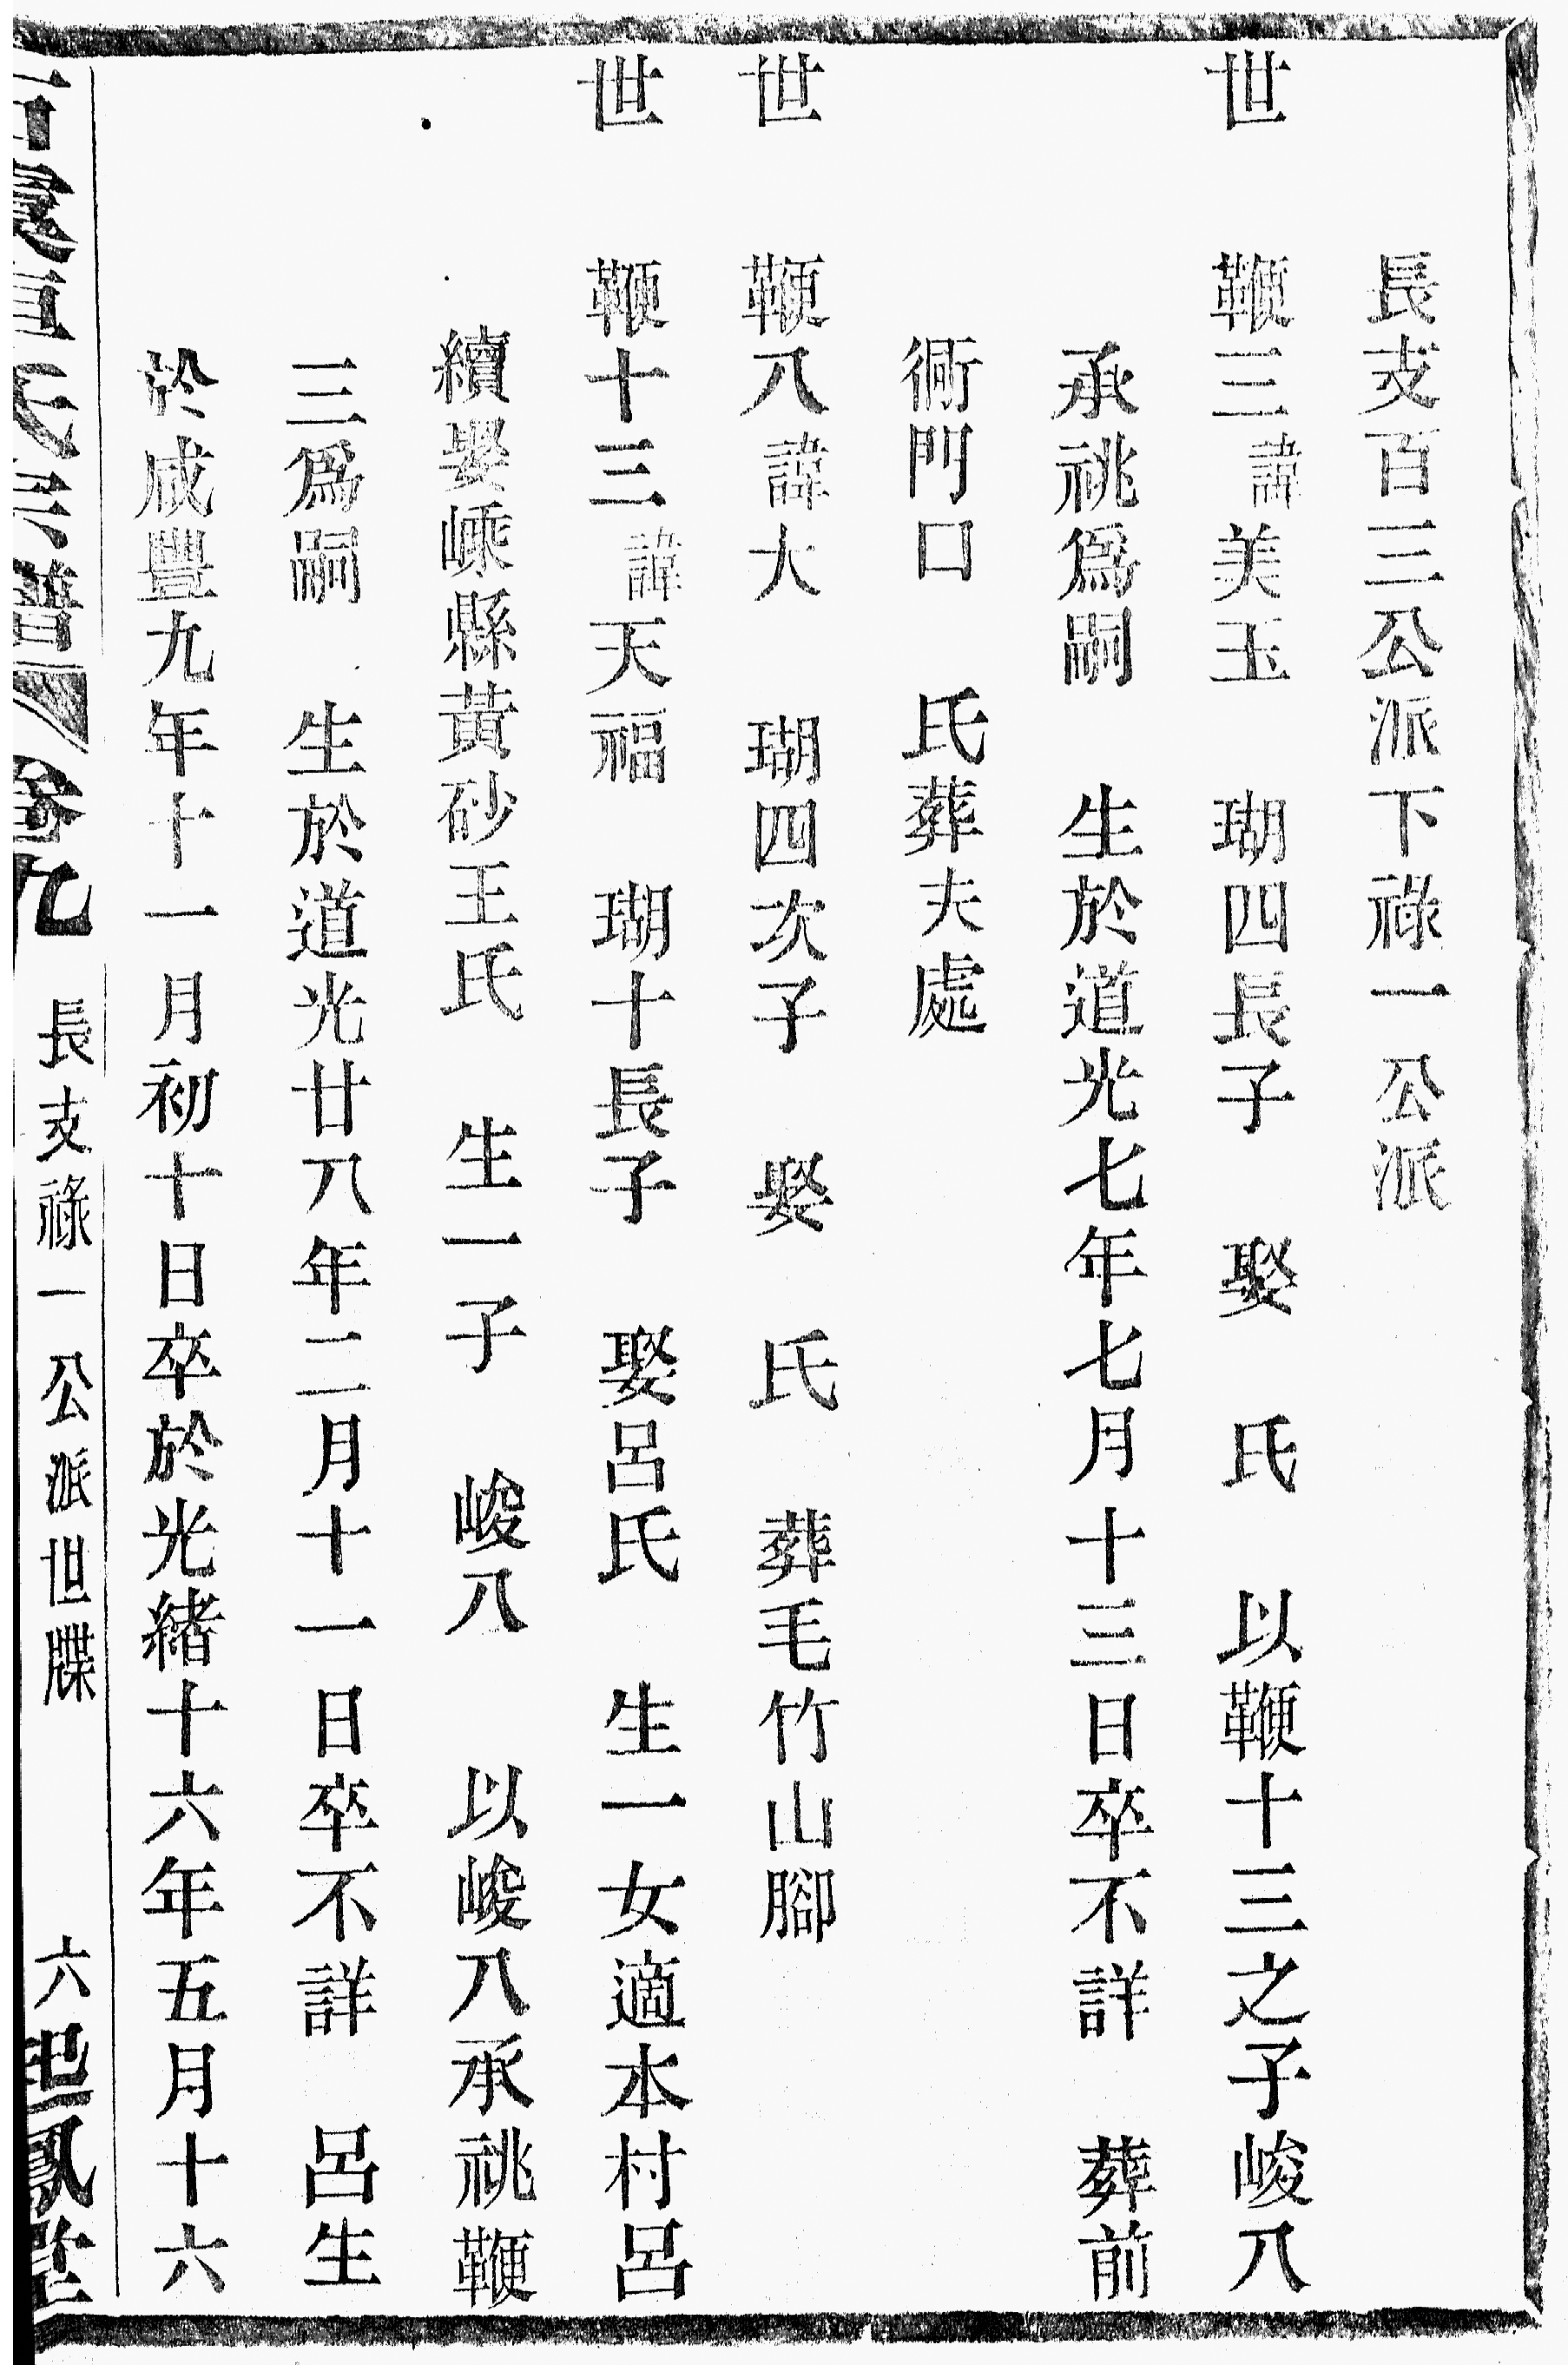 長支百三公派下祿一公派
世 鞭三諱美玉 瑚四長子 娶 氏 以鞭十三之子峻八
承祧爲嗣 生於道光七年七月十三日卒不詳 葬前
衕門口 氏葬夫處
世 鞭八諱大 瑚四次子 娶 氏 葬毛竹山腳
世 鞭十三諱天福 瑚十長子 娶呂氏 生一女適本村呂
續娶嵊縣黃砂王氏 生一子 峻八 以峻八承祧鞭
三爲嗣 生於道光廿八年二月十一日卒不詳 呂生
於咸豐九年十一月初十日卒於光緒十六年五月十六
氏宗譜 卷九 長支祿一公派世牒 六 鳳堂